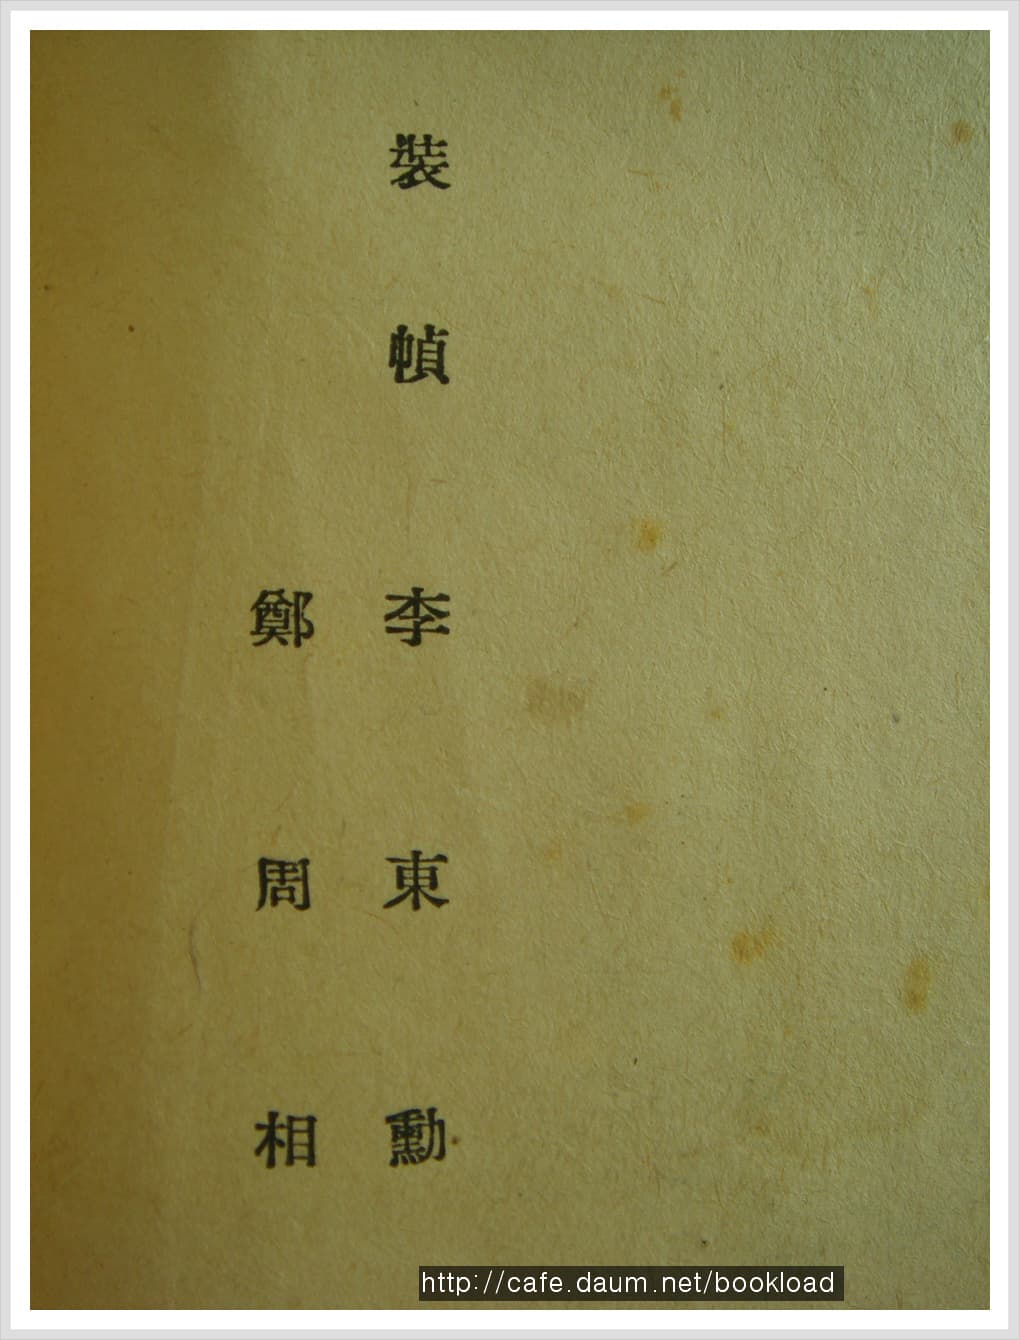 裝幀 李東勳
鄭周相
http://cafe.daum.net/bookload